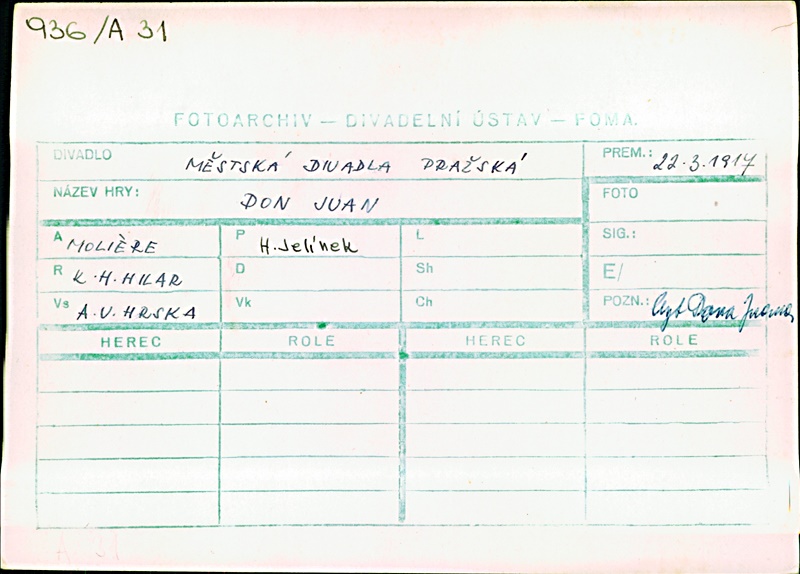 936/A 31
FOTOARCHIV — DIVADELNÍ ÚSTAV — FOMA.
DIVADLO MĚSTSKÁ DIVADLA PRAŽSKÁ PREM.: 22.3.1917
NÁZEV HRY: DON JUAN FOTO
A MOLIÈRE P H. Jelínek L SIG.:
R K.H. HILAR D Sh E/
Vs A.V. HRSKA Vk Ch POZN.: Dona Juana
HEREC ROLE HEREC ROLE
A 31